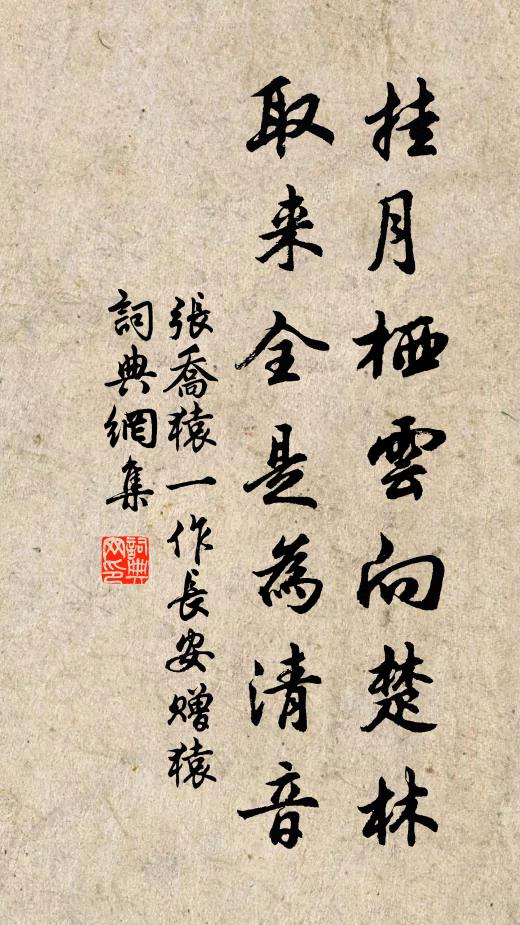 挂月栖雲向楚林
取来全是為清音
張喬猿一作長安贈猿
詞典網集
詞典网印